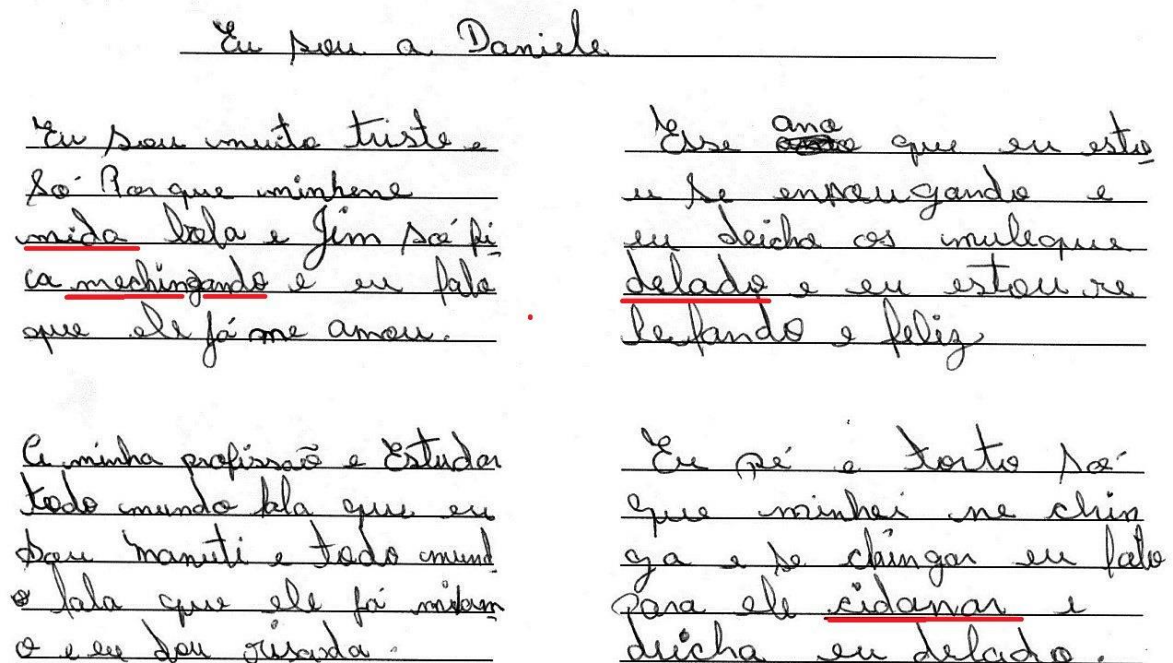 Eu sou a Daniele
Eu sou muito triste e
só Porque minhene
mida bola e Jim só fi
ca mechingando e eu falo
que ele já me amou.
A minha profissaõ e Estudar
todo mundo fala que eu
sou manuti e todo mund
o fala que ele já
o e eu dou risada.
Esse ano que eu esto
u se enxougando e
eu deicho os muleque
delado e eu estou re
lefando e feliz
Eu pé e torto só
que minhei me chin
ga e se chingar eu falo
para ele cidanar e
deicha eu delado.